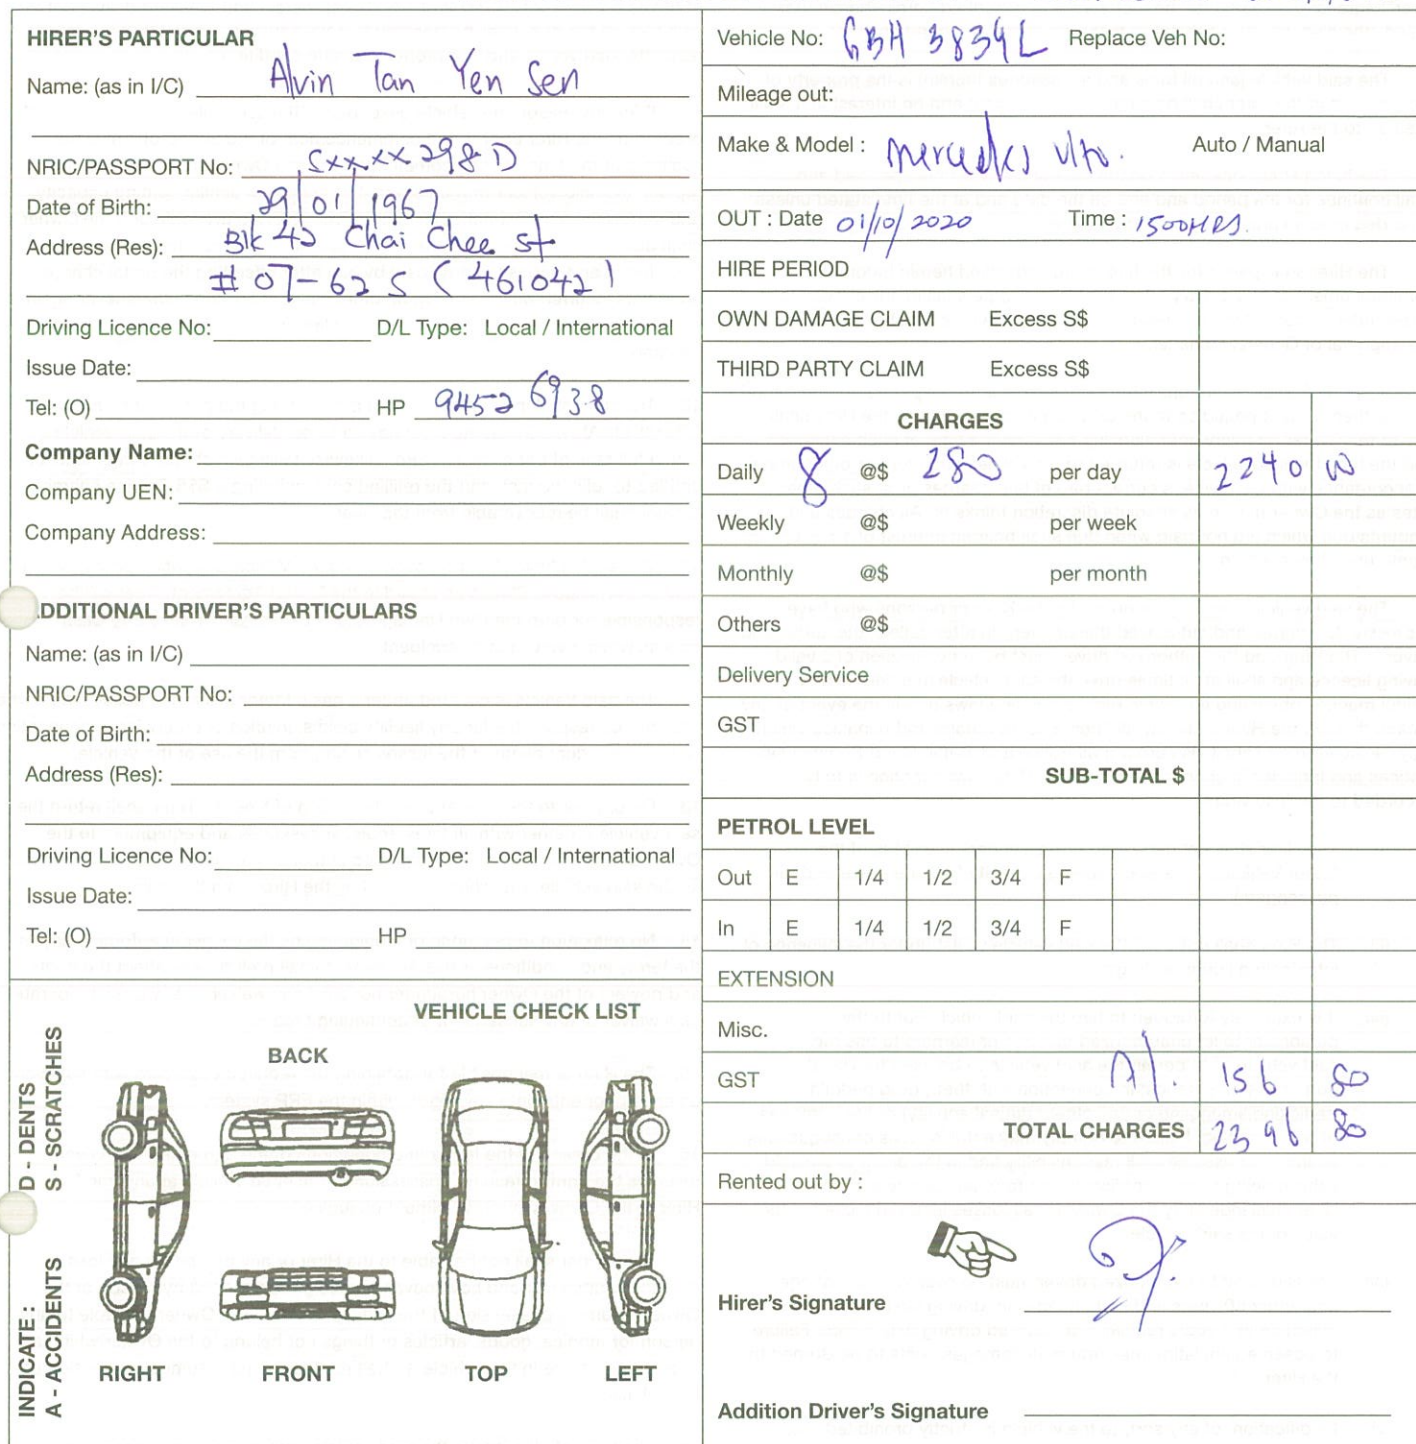 HIRER'S PARTICULAR
Name: (as in I/C) Alvin Tan Yen Sen
NRIC/PASSPORT No: SXXXX298D
Date of Birth: 29/01/1967
Address (Res): Blk 42 Chai Chee St
#07-62 S (461042)
Driving Licence No: D/L Type: Local / International
Issue Date:
Tel: (O) HP 9452 6938
Company Name:
Company UEN:
Company Address:
DDITIONAL DRIVER'S PARTICULARS
Name: (as in I/C)
NRIC/PASSPORT No:
Date of Birth:
Address (Res):
Driving Licence No: D/L Type: Local / International
Issue Date:
Tel: (O) HP
VEHICLE CHECK LIST
INDICATE :
A - ACCIDENTS
D - DENTS
S - SCRATCHES
BACK
RIGHT FRONT TOP LEFT
Vehicle No: GBH 3839L Replace Veh No:
Mileage out:
Make & Model : Mercedes Vito. Auto / Manual
OUT : Date 01/10/2020 Time : 1500HRS.
HIRE PERIOD
OWN DAMAGE CLAIM Excess S$
THIRD PARTY CLAIM Excess S$
CHARGES
Daily 8 @$ 280 per day 2240 00
Weekly @$ per week
Monthly @$ per month
Others @$
Delivery Service
GST
SUB-TOTAL $
PETROL LEVEL
Out E 1/4 1/2 3/4 F
In E 1/4 1/2 3/4 F
EXTENSION
Misc.
GST 7%. 156 80
TOTAL CHARGES 2396 80
Rented out by :
Hirer's Signature
Addition Driver's Signature